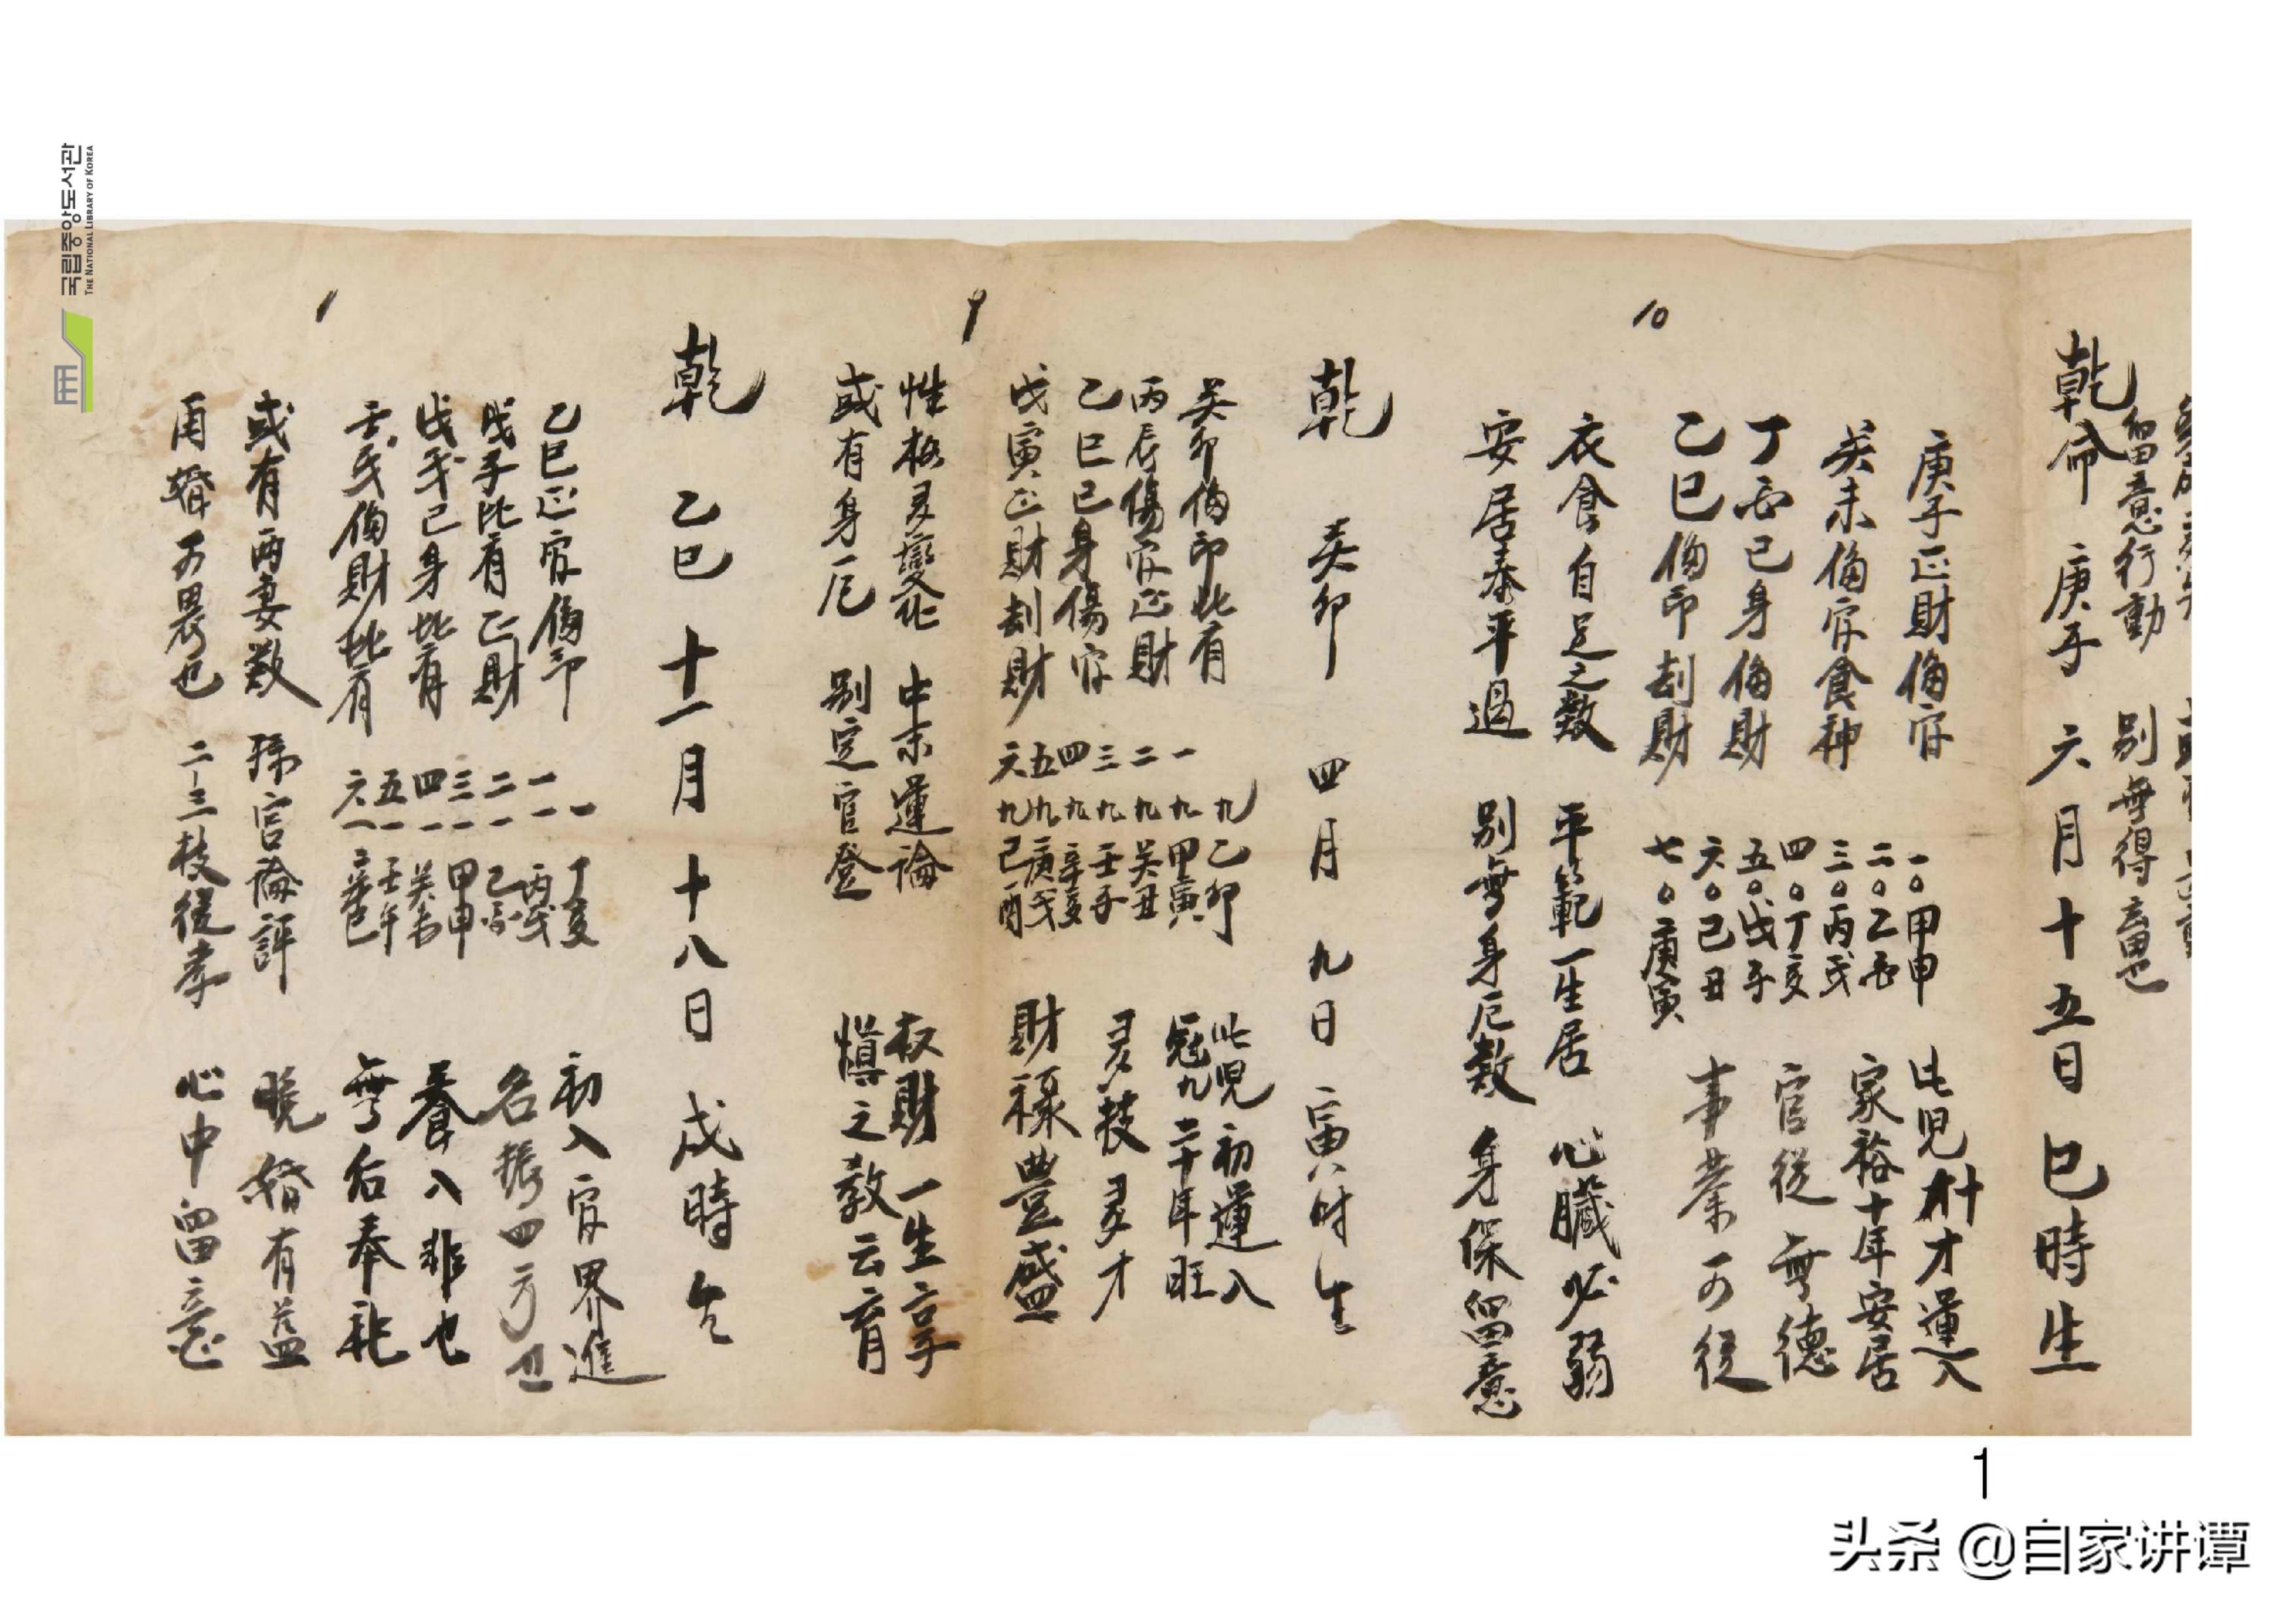 留意行動 別無得意也
乾命 庚子 六月十五日 巳時生
庚子正財偏官
癸未偏官食神
丁酉己身偏財
乙巳偏印刦財
一〇甲申
二〇乙酉
三〇丙戌
四〇丁亥
五〇戊子
六〇己丑
七〇庚寅
此兒 才運入
家裕十年安居
官從無德
事業可從
衣食自足之数 平範一生居 心臟必弱
安居泰平過 別無身厄数 身保留意
10
乾 癸卯 四月 九日 寅时生
癸卯偏印比肩
丙辰傷官正財
乙巳己身傷官
戊寅正財刦財
九乙卯
一九甲寅
二九癸丑
三九壬子
四九辛亥
五九庚戌
六九己酉
此兒初運入
冠九二十年旺
多技多才
財祿豊盛
性格多變化 中末運論 权財一生享
或有身厄 別定官登 慎之教云育
9
乾 乙巳 十一月 十八日 戌時生
乙巳正官偏印
戊子比肩正財
戊戌己身比肩
壬戌偏財比肩
一丁亥
一一丙戌
二一乙酉
三一甲申
四一癸未
五一壬午
六一辛巳
初入官界進
名振四方
養入非也
無后奉祀
或有两妻数 官論評 晚婚有益
再婚可畏也 二三枝從孝 心中留意
1
국립중앙도서관
THE NATIONAL LIBRARY OF KOREA
1
头杀 @自家讲谭